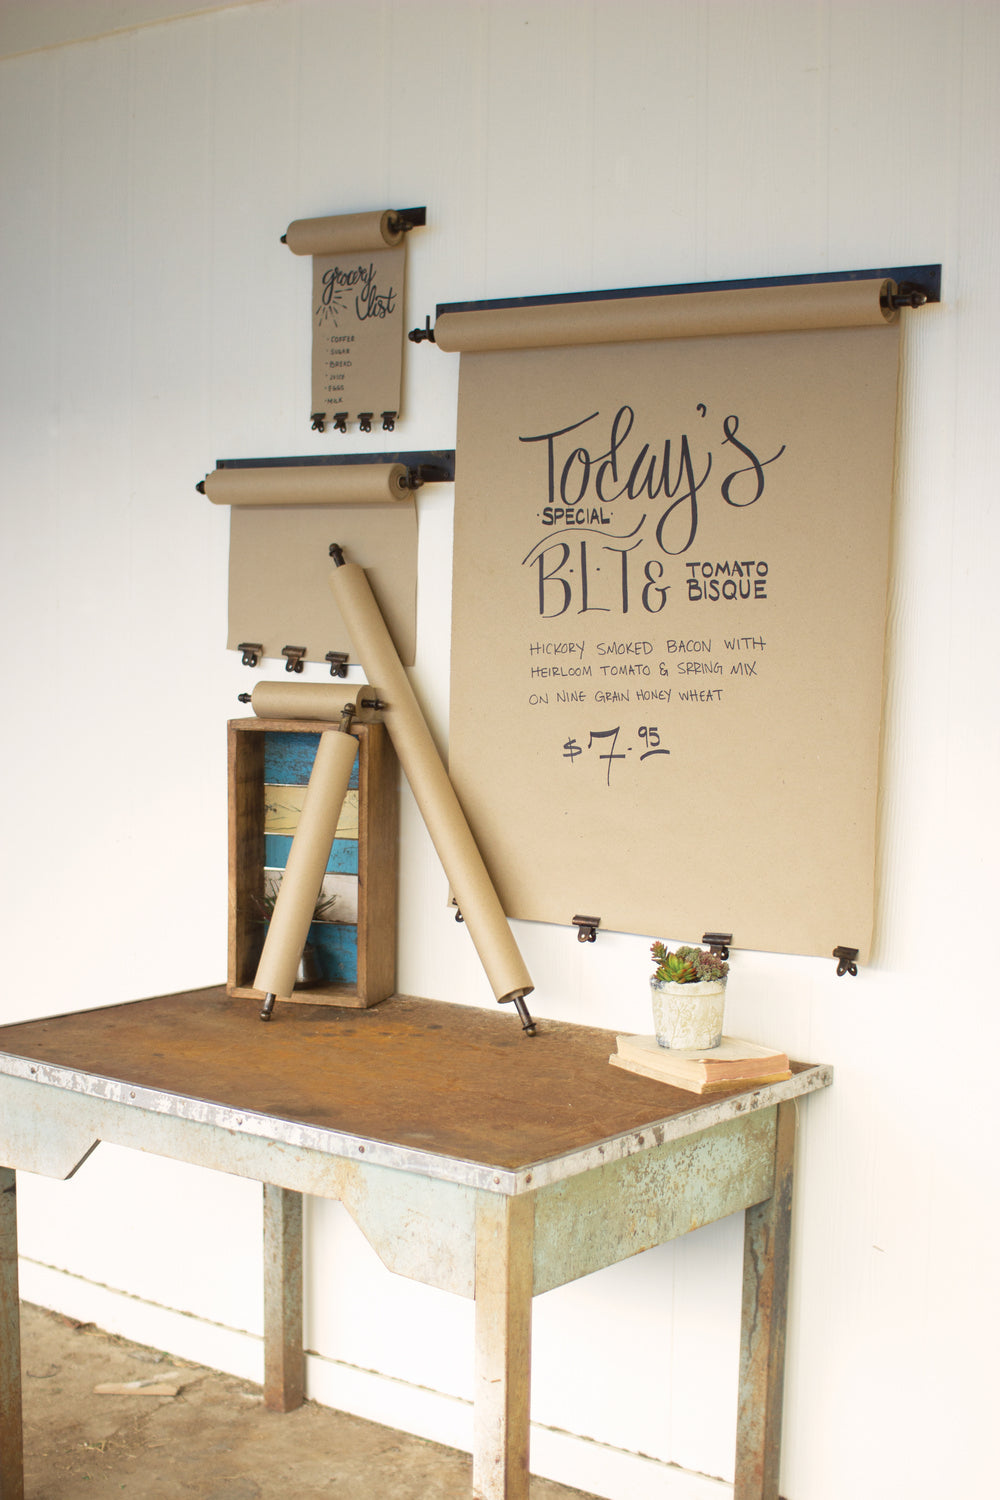 grocery
list
· COFFEE
· SUGAR
· BREAD
· JUICE
· EGGS
· MILK
Today's
· SPECIAL ·
B·L·T & TOMATO
BISQUE
HICKORY SMOKED BACON WITH
HEIRLOOM TOMATO & SPRING MIX
ON NINE GRAIN HONEY WHEAT
$7.95